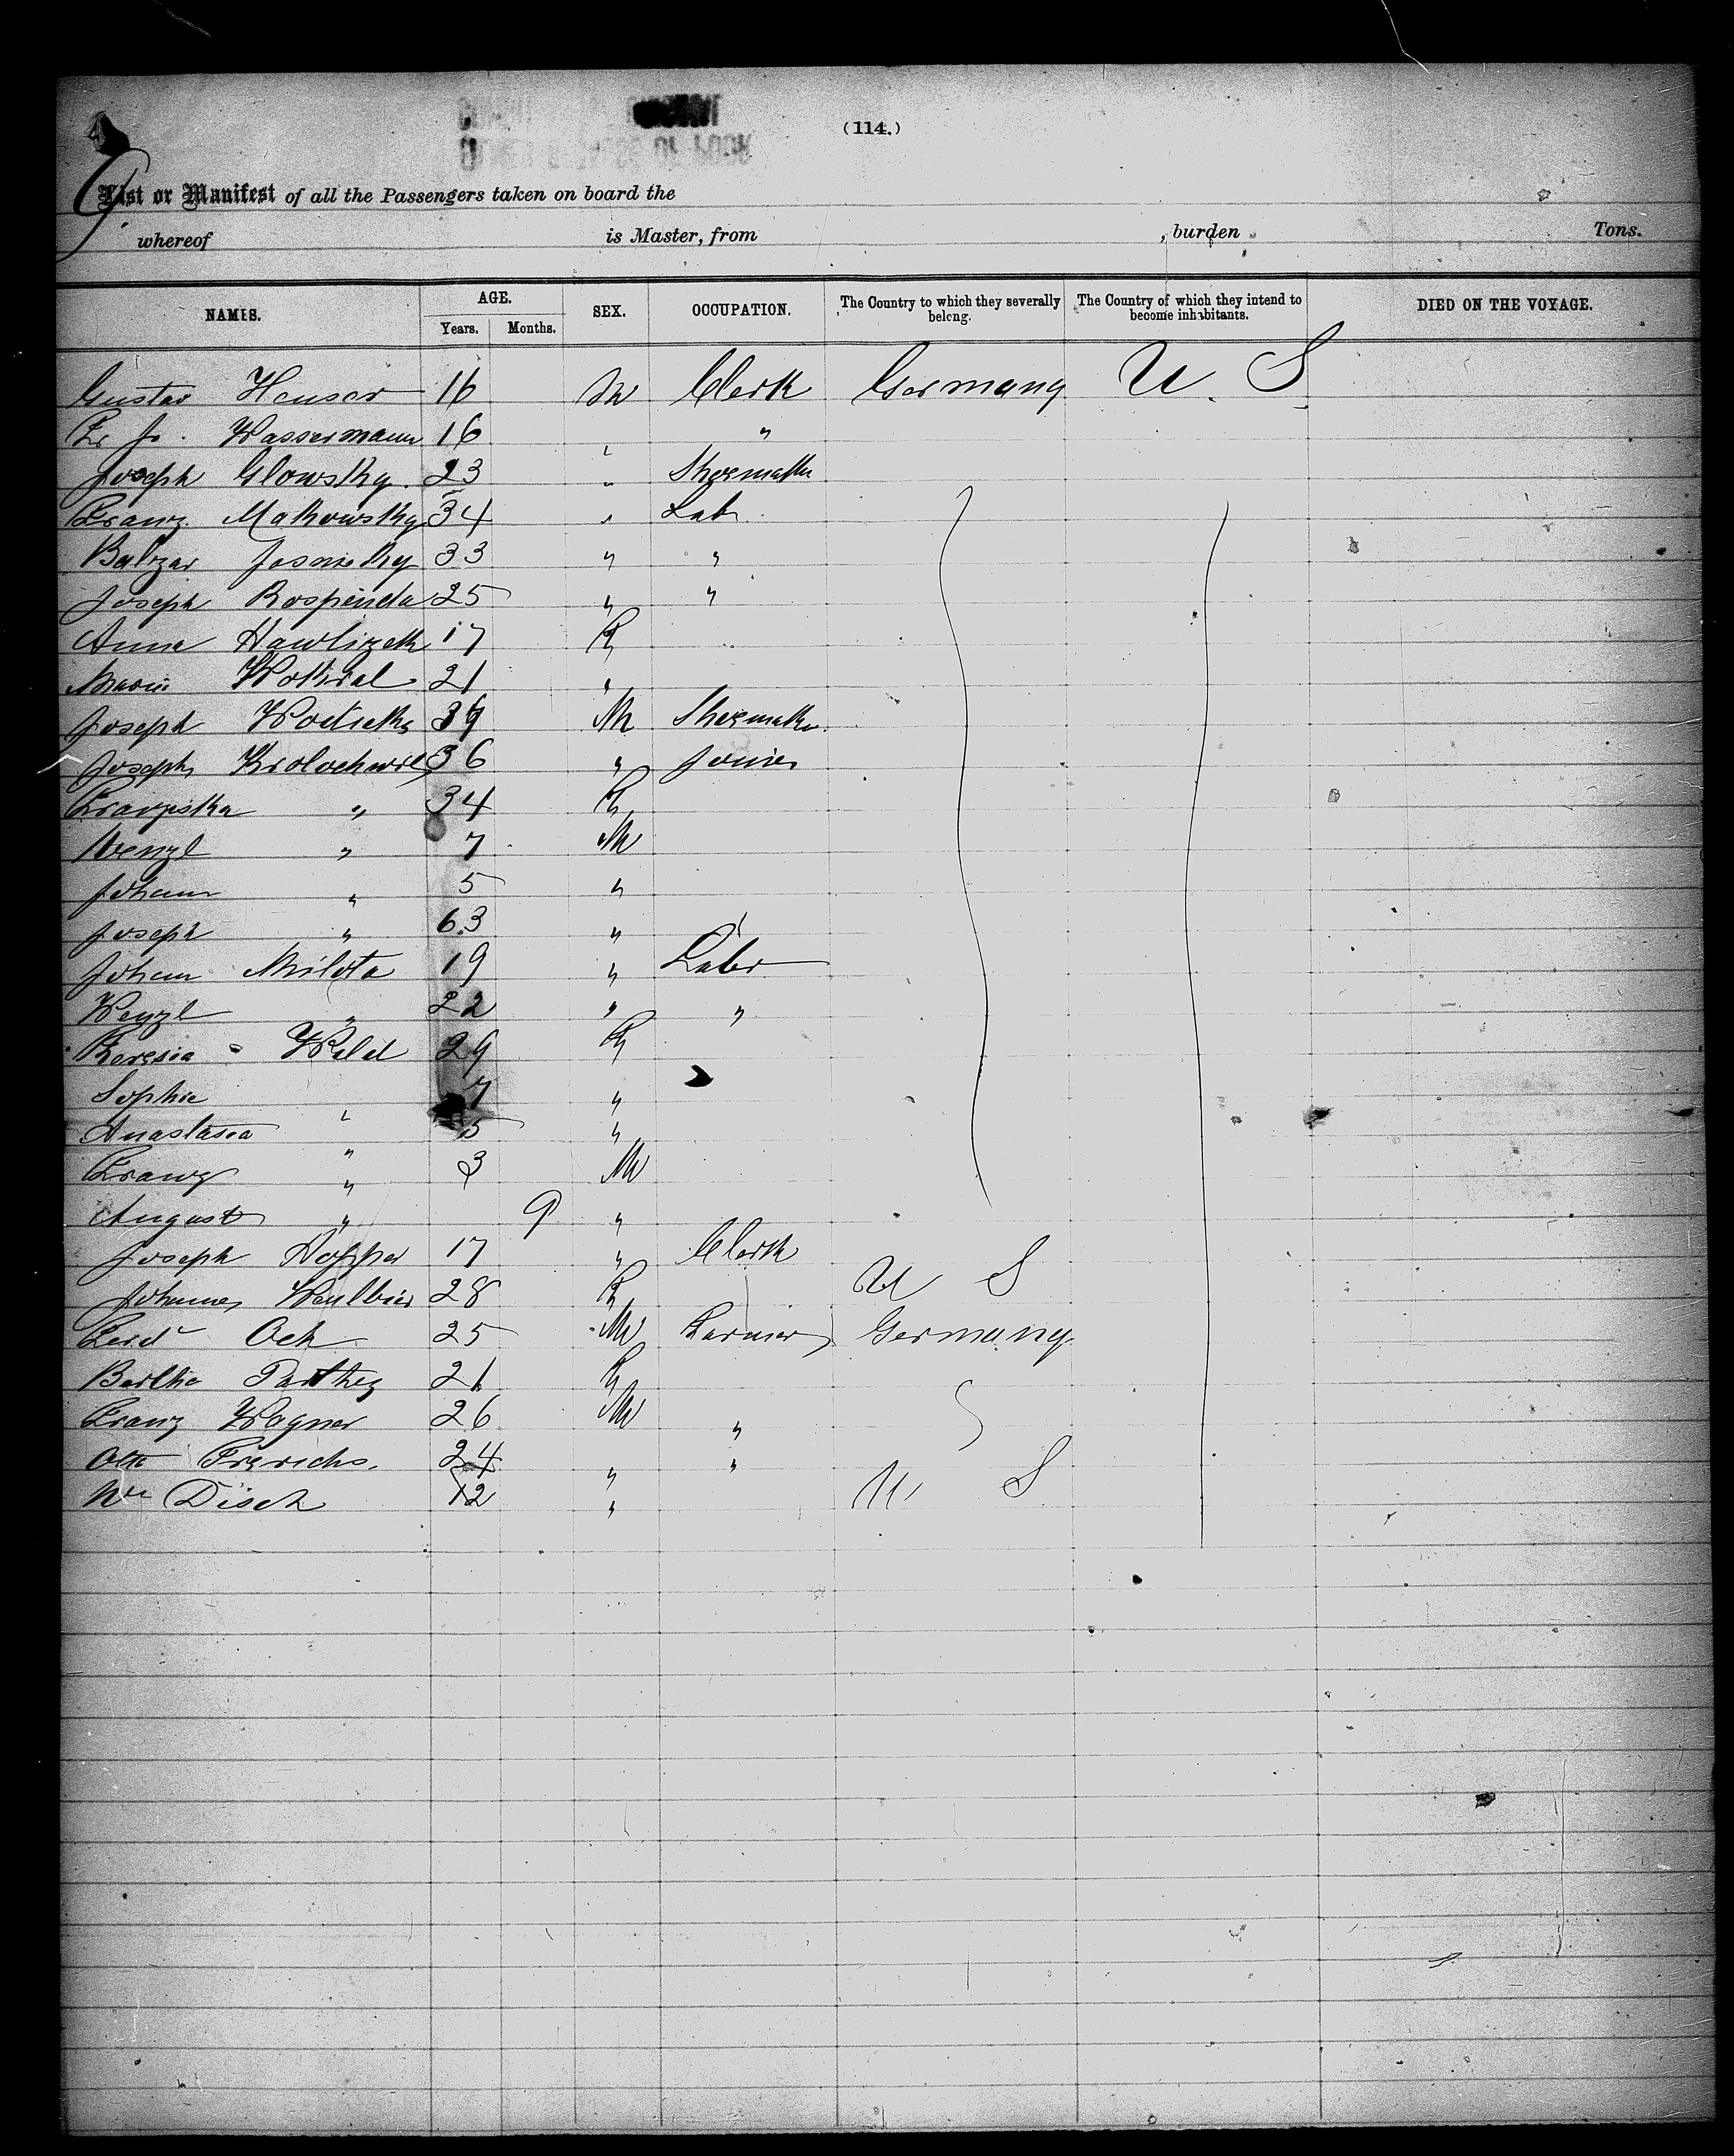 (114.)
List or Manifest of all the Passengers taken on board the
whereof is Master, from , burden Tons.
NAMES. AGE. Years. Months. SEX. OCCUPATION. The Country to which they severally belong. The Country of which they intend to become inhabitants. DIED ON THE VOYAGE.
Gustav Heuser 16 M Clerk Germany U. S.
Wassermann 16 "
Joseph Glowsky. 23 " Shoemaker
Franz Makowsky 34 " Lab.
Balzar 33 " "
Joseph Rospenda 25 " "
Anna Hawlizek 17 F
Marie 21 "
Joseph Wodicka 39 M Shoemaker
Joseph Krolochwil 36 " Joiner
Franziska " 34 F
Wenzl " 7 M
Johann " 5 "
Joseph " 63 "
Johann Milota 19 " Labr
Wenzl " 22 " "
Theresia Wild 29 F
Sophie 7 "
Anastasia " 5 "
Franz " 3 M
August " 9 "
Joseph Hopper 17 " Clerk
Johannes 28 F U S
Ferd Och 25 M Farmer Germany
Bertha Parthey 21 F
Franz Wagner 26 M "
Otto Frerichs. 24 " "
Wm Disch 12 " U S